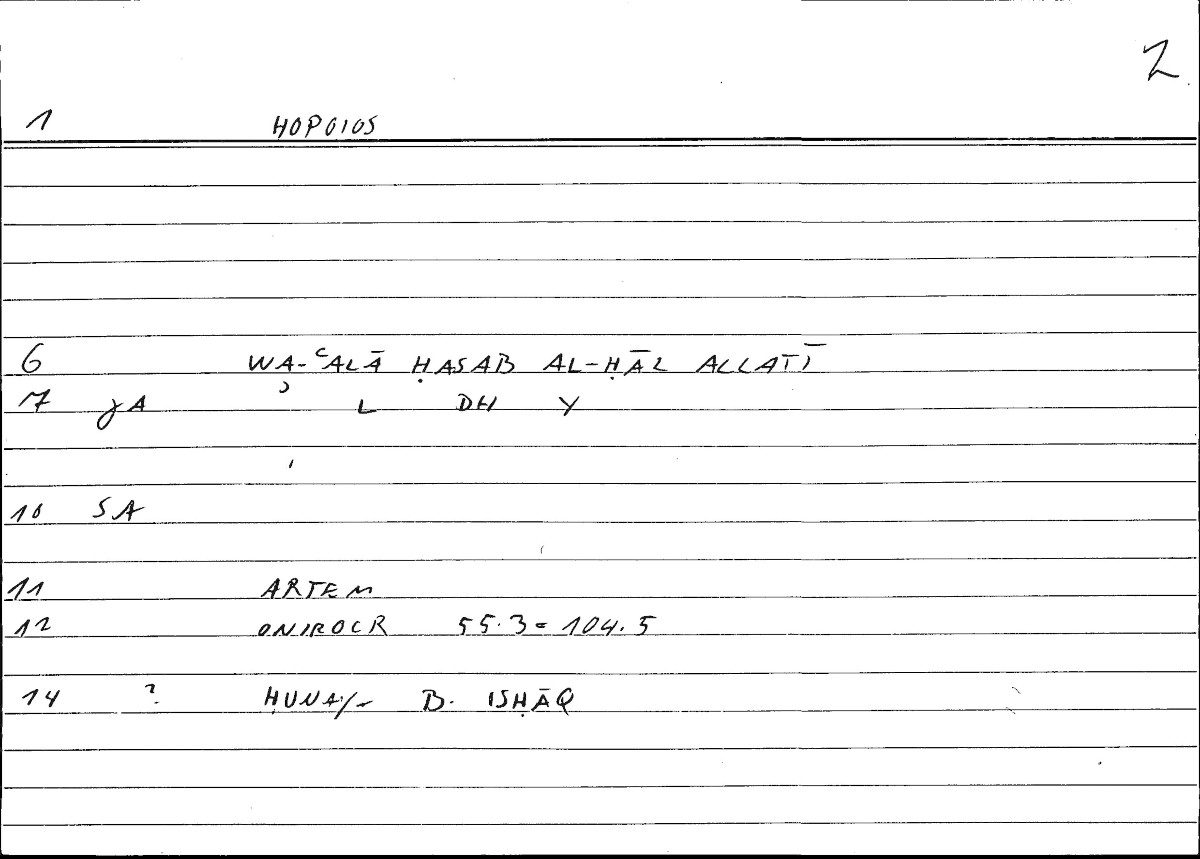 2
1 HOPOIOS
6 WA-ʿALĀ ḤASAB AL-ḤĀL ALLATĪ
7 jA ʾ L DH Y
10 SA
11 ARTEM
12 ONIROCR 55.3 = 104.5
14 ? ḤUNAYN B. ISḤĀQ